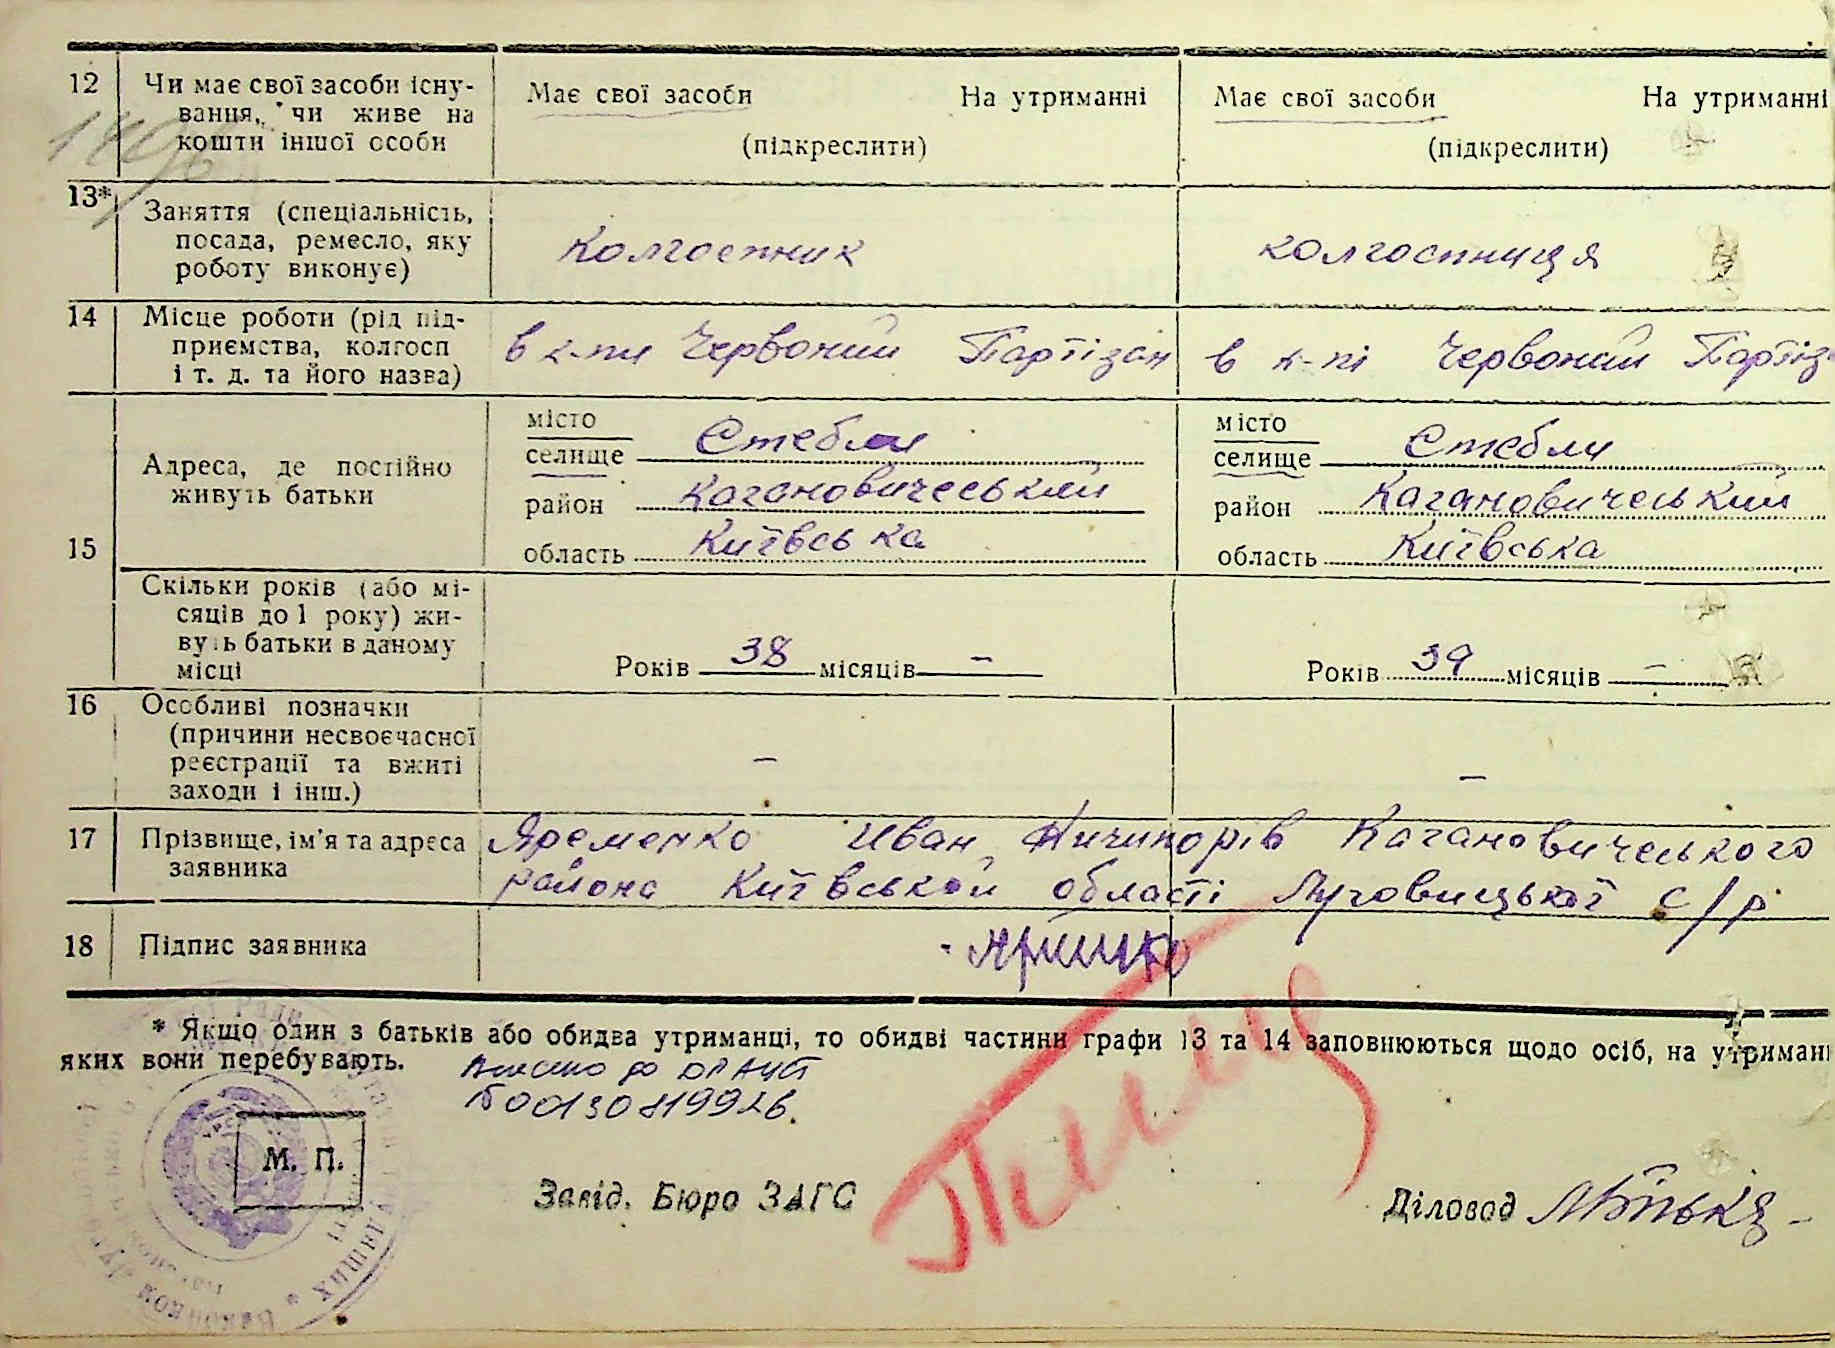 12 Чи має свої засоби існу-
вання, чи живе на
кошти іншої особи
Має свої засоби На утриманні
(підкреслити)
Має свої засоби На утриманні
(підкреслити)
13* Заняття (спеціальність,
посада, ремесло, яку
роботу виконує)
Колгоспник
колгоспниця
14 Місце роботи (рід під-
приємства, колгосп
і т. д. та його назва)
в к-пи Червоний Партізан
в к-пі Червоний Партіз
15 Адреса, де постійно
живуть батьки
місто
селище Стебли
район Кагановичеський
область Київська
місто
селище Стебли
район Кагановичеський
область Київська
Скільки років (або мі-
сяців до 1 року) жи-
вуть батьки в даному
місці
Років 38 місяців –
Років 39 місяців –
16 Особливі позначки
(причини несвоєчасної
реєстрації та вжиті
заходи і інш.)
–
–
17 Прізвище, ім'я та адреса
заявника
Яременко Иван Ничипорів Кагановичеського
района Київськой області Луговицької с/р
18 Підпис заявника
* Якщо один з батьків або обидва утриманці, то обидві частини графи 13 та 14 заповнюються щодо осіб, на утриман
яких вони перебувають.
М. П.
Завід. Бюро ЗАГС
Діловод